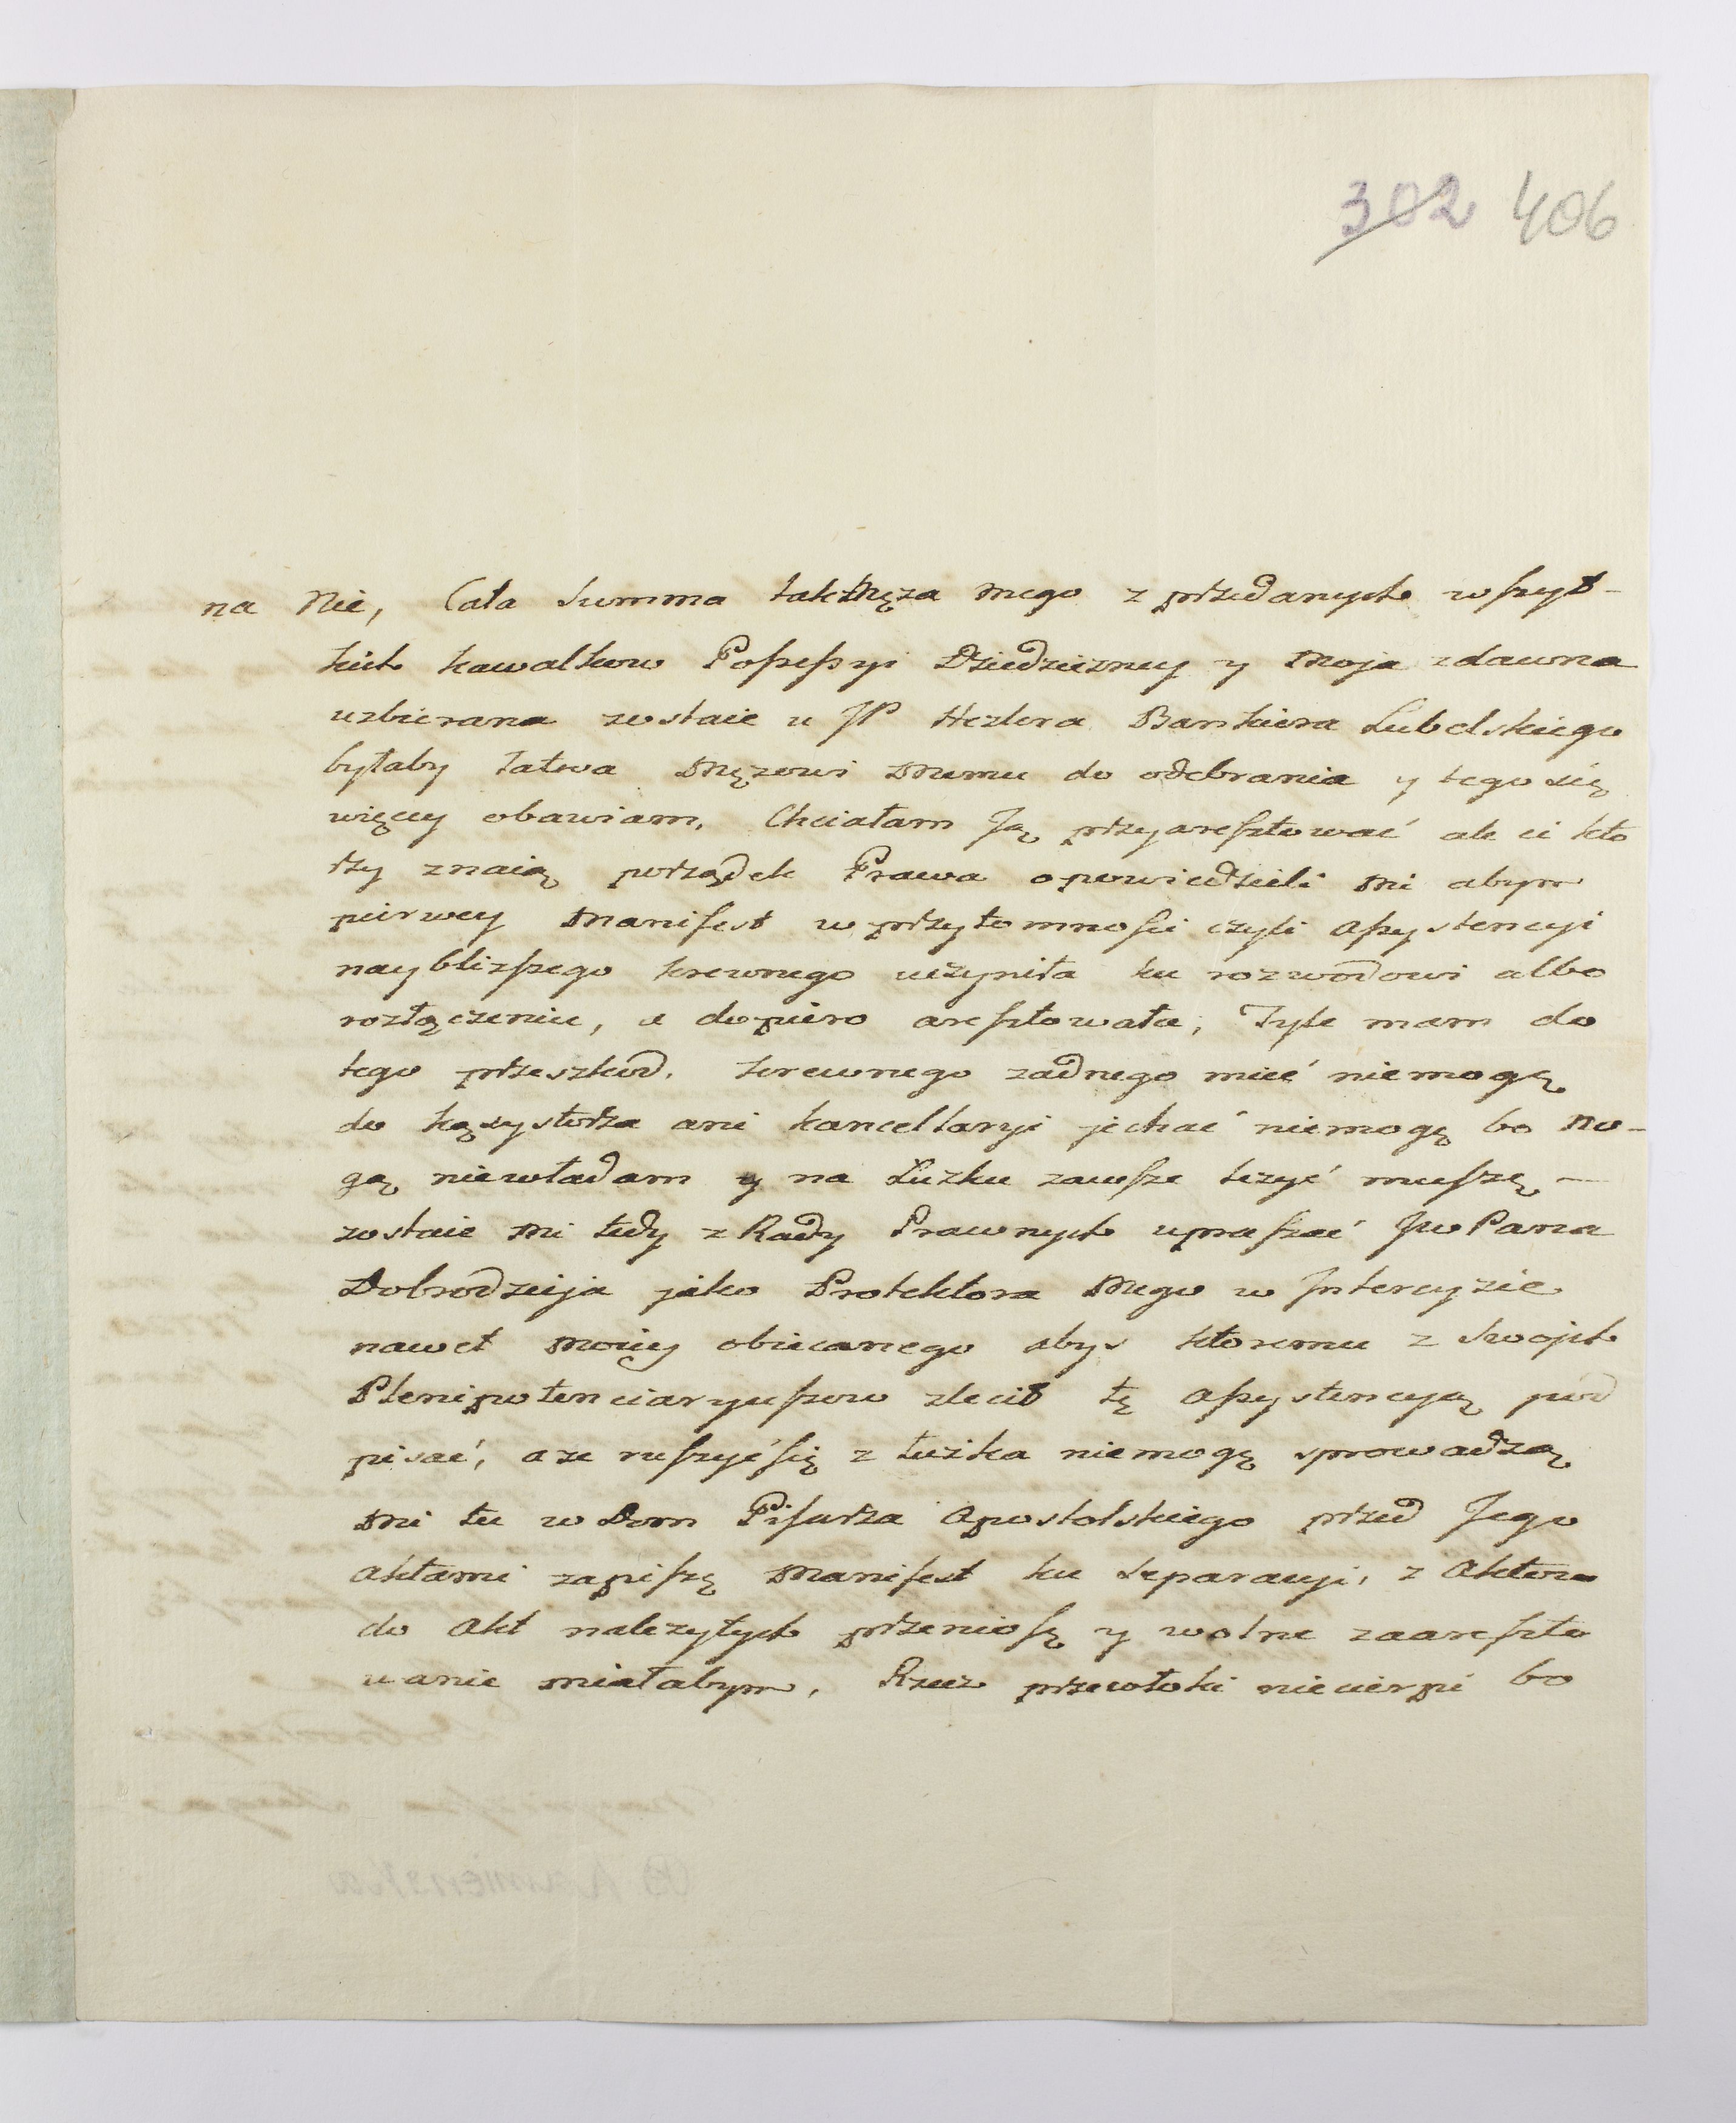 302 406
na Nie, Cała Summa tak Męża mego z przedanych wszyt-
kich kawałkow Possessyi Dziedziczney y Moja zdawna
uzbierana zostaie u JP Hezlera Bankiera Lubelskiego
byłaby łatwa Mężowi Memu do odebrania y tego się
więcey obawiam, Chciałam Ją przyaresztować ale ci kto
rzy znaią porządek Prawa opowiedzieli Mi abym
pierwey Manifest w przytomności czyli Assystencyi
nayblizszego krewnego uczyniła ku rozwodowi albo
rozłączeniu, a dopiero aresztowała, Tyle mam do
tego przeszkod. krewnego zadnego mieć niemogę
do kąsystorza ani kancellaryi jechać niemogę bo No-
gą niewładam y na Łuzku zawsze leżyć muszę —
zostaie Mi tedy z Rady Prawnych upraszać JW Pana
Dobrodzieja jako Protektora Mego w Intercyzie
nawet Moiey obiecanego abyś ktoremu z Swojch
Plenipotencyaryuszow zlecił tę Assystencyą pod
pisać, a ze ruszyć się z łużka niemogę sprowadzą
Mi tu w Dom Pisarza Apostolskiego przed Jego
Aktami zapiszę Manifest ku Separacyi, z Aktow
do Akt nalezytych przeniosę y wolne zaareszto
wanie miałabym, Rzecz przewłoki niecierpi bo